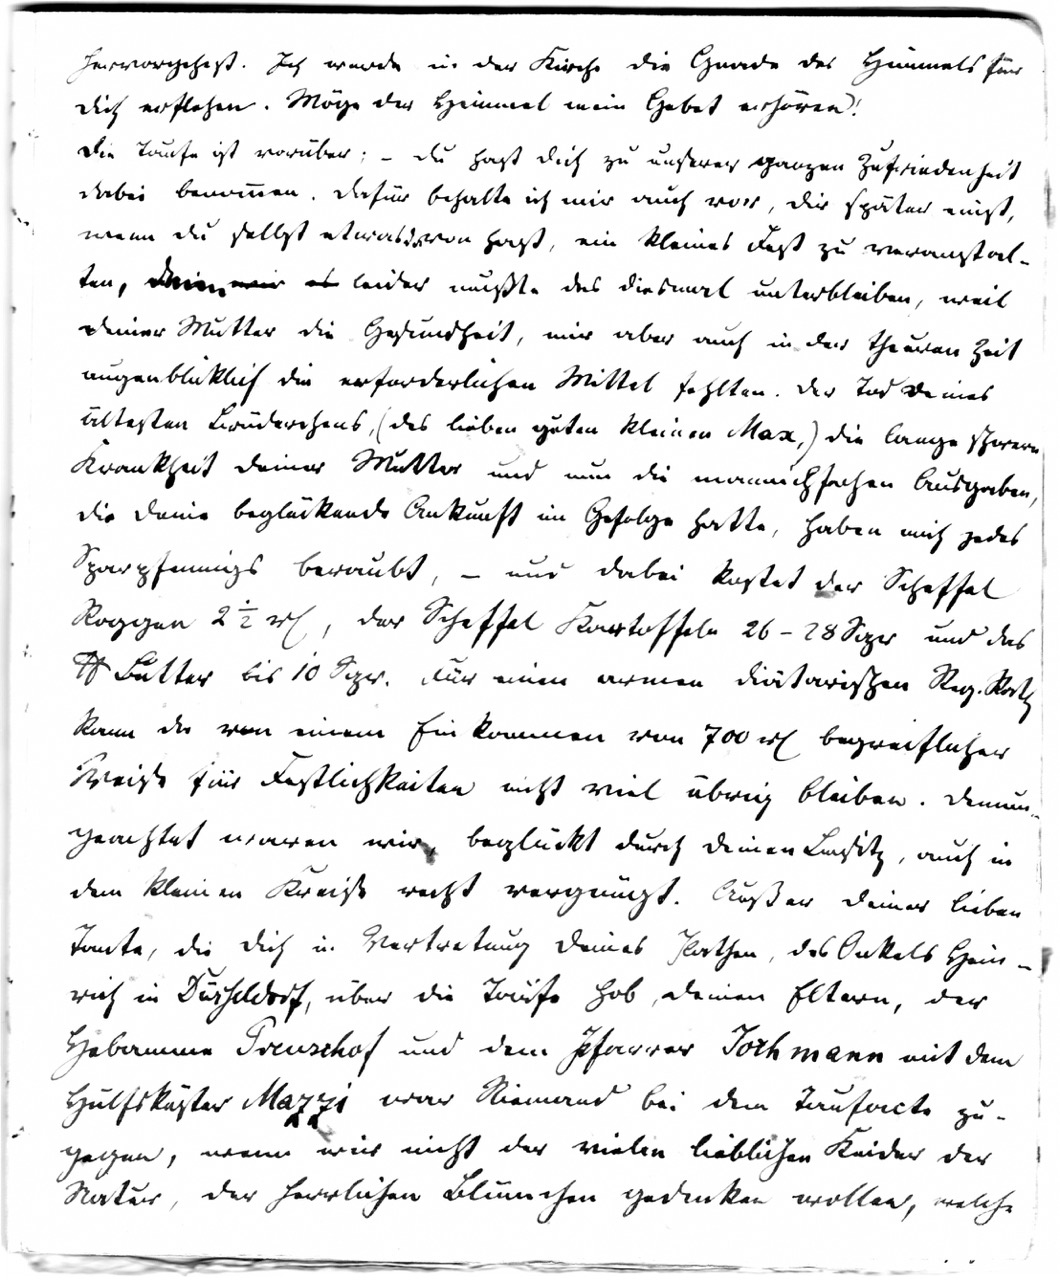 hervorgehest. Ich werde in der Kirche die Gnade des Himmels für
dich erflehen. Möge der Himmel mein Gebet erhören!
Die Taufe ist vorüber; – du hast dich zu unserer ganzen Zufriedenheit
dabei benom̄en. Dafür behalte ich mir auch vor, dir später einst,
wenn du selbst etwas davon hast, ein kleines Fest zu veranstal-
ten, leider mußte das diesmal unterbleiben, weil
deiner Mutter die Gesundheit, mir aber auch in der theuren Zeit
augenbliklich die erforderlichen Mittel fehlten. Der Tod deines
ältesten Brüderchens, (des lieben guten kleinen Max,) die lange schwere
Krankheit deiner Mutter und nun die mannichfachen Ausgaben,
die deine beglükende Ankunft im Gefolge hatte, haben mich jedes
Sparpfennigs beraubt, – und dabei kostet der Scheffel
Roggen 2 ½ rl, der Scheffel Kartoffeln 26 – 28 Sgr und das
℔ Butter bis 10 Sgr. Für einen armen diätarischen Reg. Rath
kann da von einem Einkommen von 700 rl begreiflicher
Weise für Festlichkeiten nicht viel übrig bleiben. Demun-
geachtet waren wir, beglückt durch deinen Besitz, auch in
dem kleinen Kreise recht vergnügt. Außer deiner lieben
Tante, die dich in Vertretung deines Pathen, des Onkels Hein-
rich in Düsseldorf, über die Taufe hob, deinen Eltern, der
Hebamme Treuschof und dem Pfarrer Jothmann mit dem
Hülfsküster Mazzi war Niemand bei dem Taufacte zu-
gegen, wenn wir nicht der vielen lieblichen Kinder der
Natur, der herrlichen Blümchen gedenken wollen, welche